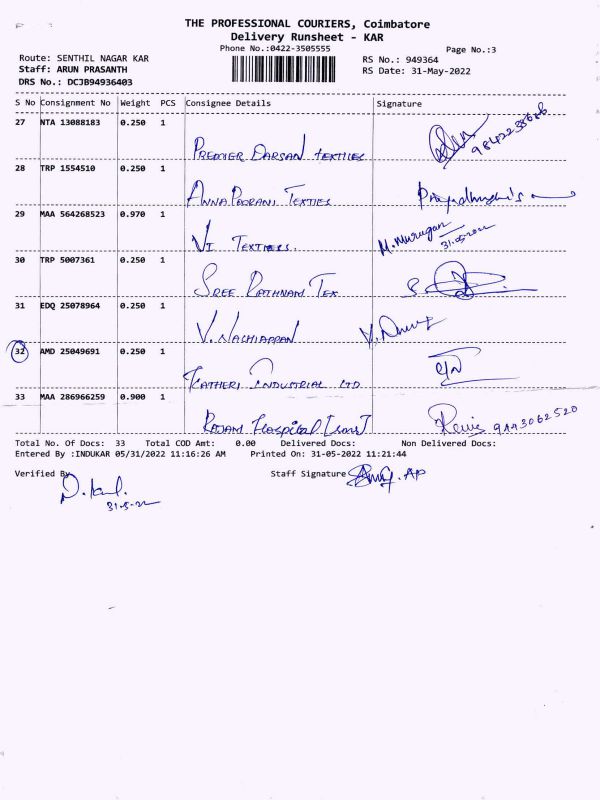 THE PROFESSIONAL COURIERS, Coimbatore
Delivery Runsheet - KAR
Phone No.:0422-3505555
Page No.:3
Route: SENTHIL NAGAR KAR
RS No.: 949364
Staff: ARUN PRASANTH
RS Date: 31-May-2022
DRS No.: DCJB94936403
S No Consignment No Weight PCS Consignee Details Signature
27 NTA 13088183 0.250 1
PREMIER DARSAN TEXTILES
28 TRP 1554510 0.250 1
ANNAPOORANI TEXTILES
29 MAA 564268523 0.970 1
VI TEXTILERS. M. Murugan
31.05.2022
30 TRP 5007361 0.250 1
SREE RATHNAM TEX
31 EDQ 25078964 0.250 1
V. NACHIAPPAN
32 AMD 25049691 0.250 1
INDUSTRIAL LTD
33 MAA 286966259 0.900 1
RAJAM Hospital 9443062520
Total No. Of Docs: 33 Total COD Amt: 0.00 Delivered Docs: Non Delivered Docs:
Entered By :INDUKAR 05/31/2022 11:16:26 AM Printed On: 31-05-2022 11:21:44
Verified By Staff Signature
31-5-22